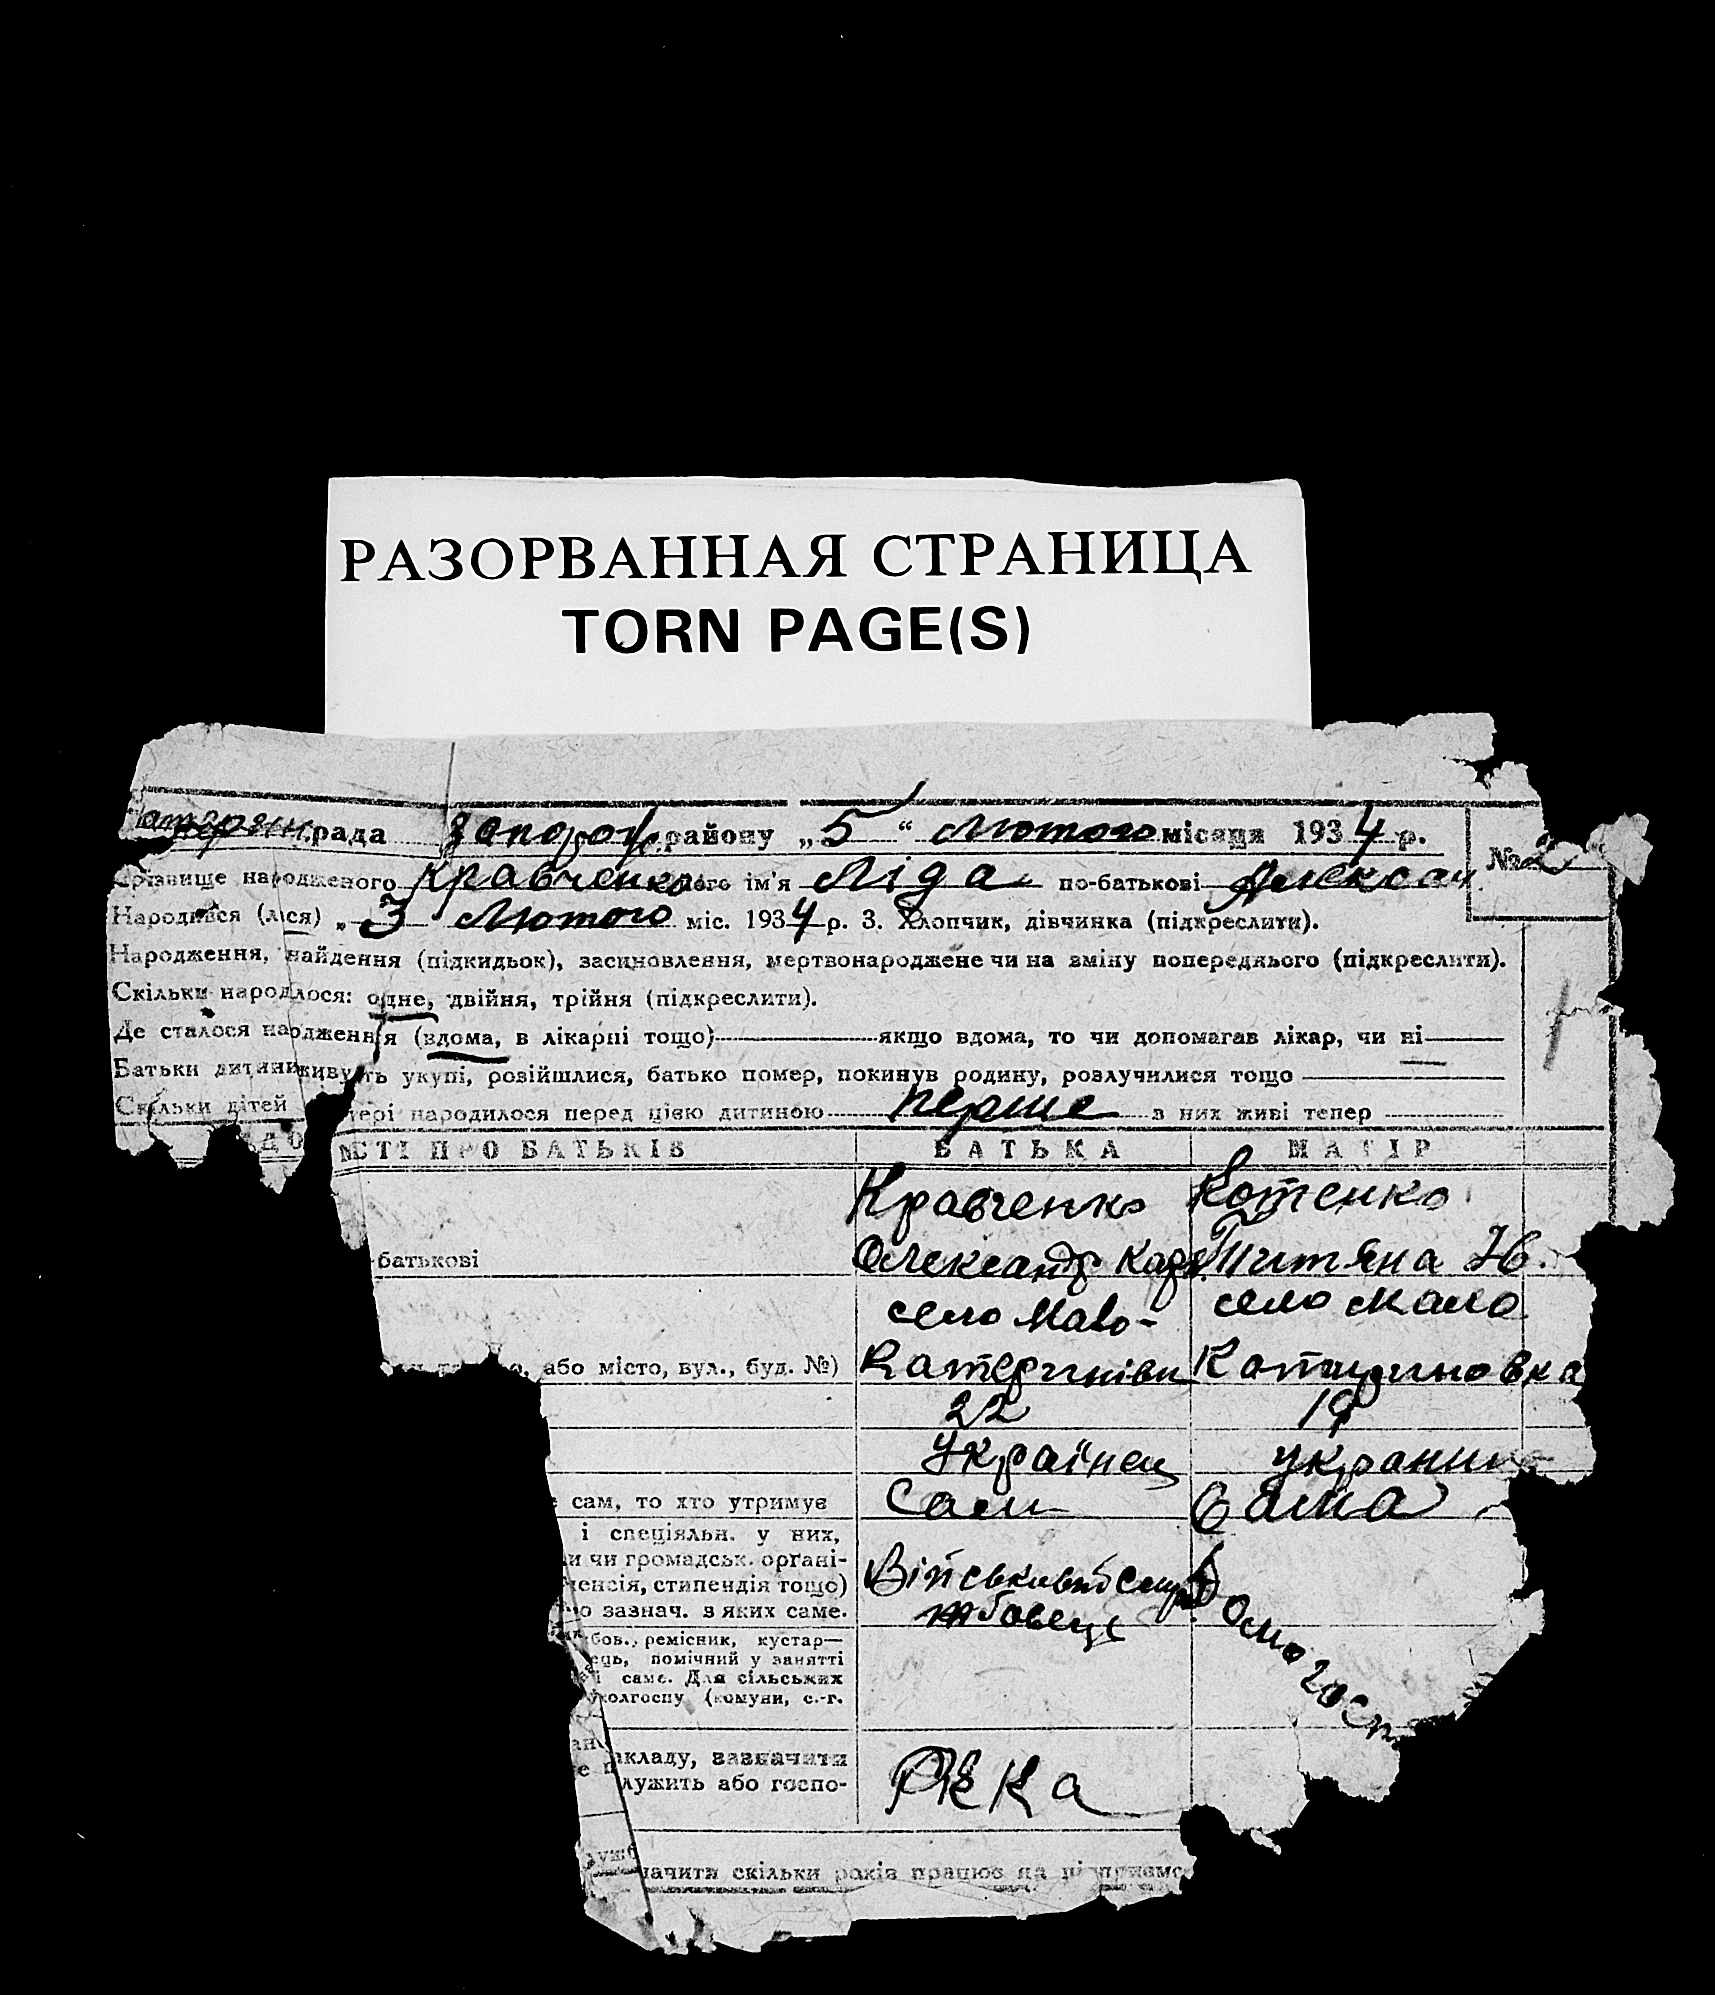 РАЗОРВАННАЯ СТРАНИЦА
TORN PAGE(S)
рада Запорозь. району „5“ Лютого місяця 1934 р.
№ 2
різвище народженого Кравченко його ім'я Ліда по-батькові Алексан
Народився (лася) „3 Лютого міс. 1934 р. 3. Хлопчик, дівчинка (підкреслити).
Народження, найдення (підкидьок), засиновлення, мертвонароджене чи на зміну попереднього (підкреслити).
Скільки народилося: одне, двійня, трійня (підкреслити).
Де сталося народження (вдома, в лікарні тощо) якщо вдома, то чи допомагав лікар, чи ні
Батьки дитини живуть укупі, розійшлися, батько помер, покинув родину, розлучилися тощо
Скільки дітей тері народилося перед цією дитиною перше з них живі тепер
ДО СТІ ПРО БАТЬКІВ БАТЬКА МАТІР
Кравченко Котенко
батькові Олександр Карп. Титяна
село Мало- село мало
або місто, вул., буд. №) Катеринівк Катериновка
22 19
Українец украин
сам, то хто утримує Сам Сама
і спеціяльн. у них,
и чи громадськ. орґані-
пенсія, стипендія тощо) Військовий служ
зазнач. з яких саме. жбовець Домогосп
бов., ремісник, кустар—
ець, помічний у занятті
саме. Для сільських
колгоспу (комуни, с.-г.
акладу, зазначити
лужить або госпо- РККа
начити скільки років працює на підприємс